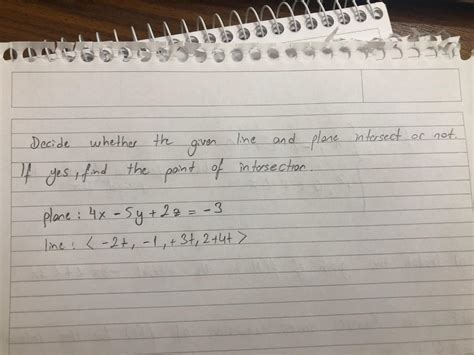 Decide whether the given line and plane intersect or not.
If yes, find the point of intersection.
plane: 4x - 5y + 2z = -3
line: < -2t, -1, +3t, 2+4t >